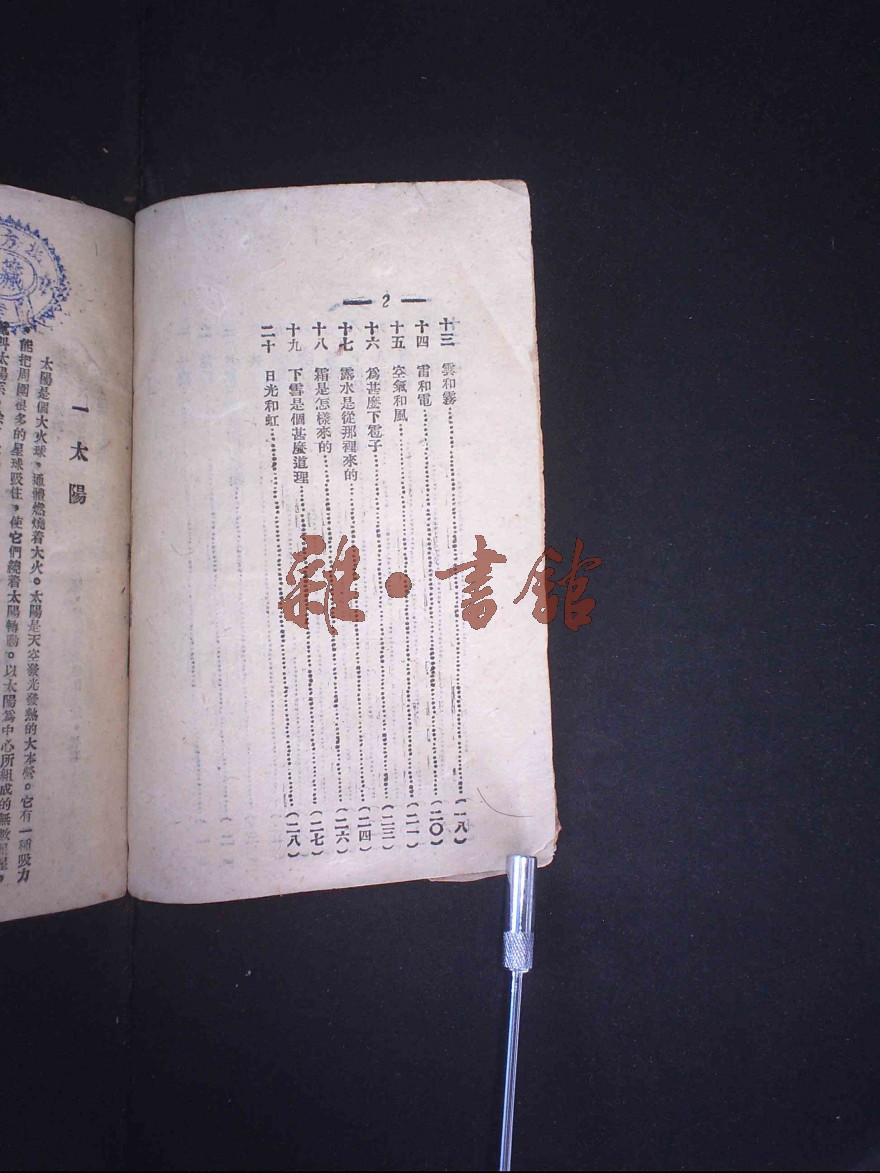 — 2 —
十三 雲和霧……(一八)
十四 雷和電……(二〇)
十五 空氣和風……(二一)
十六 爲甚麼下雹子……(二三)
十七 露水是從那裡來的……(二四)
十八 霜是怎樣來的……(二六)
十九 下雪是個甚麼道理……(二七)
二十 日光和虹……(二八)
一 太陽
太陽是個大火球，通體燃燒着大火。太陽是天空發光發熱的大本營。它有一種吸力
，能把周圍很多的星球吸住，使它們繞着太陽轉動。以太陽爲中心所組成的無數星星，
藏
雜·書館